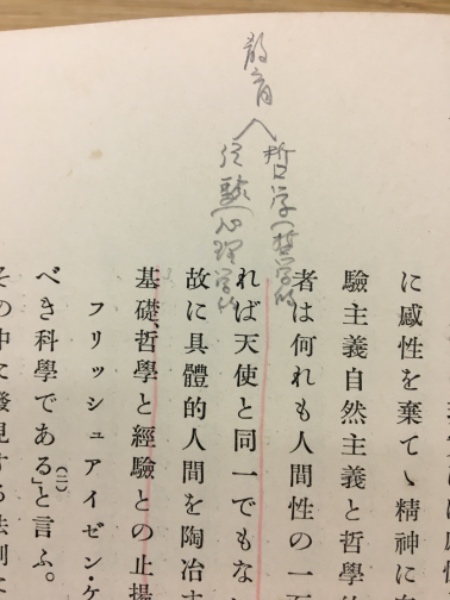 教育
哲学(哲学的
経験(心理学的
に感性を棄てゝ精神に
驗主義自然主義と哲學的
者は何れも人間性の一面
れば天使と同一でもな
故に具體的人間を陶冶
基礎、哲學と經驗との止揚
フリッシュアイゼン・ケ
べき科學である」(二)と言ふ。
その中に發見する法則